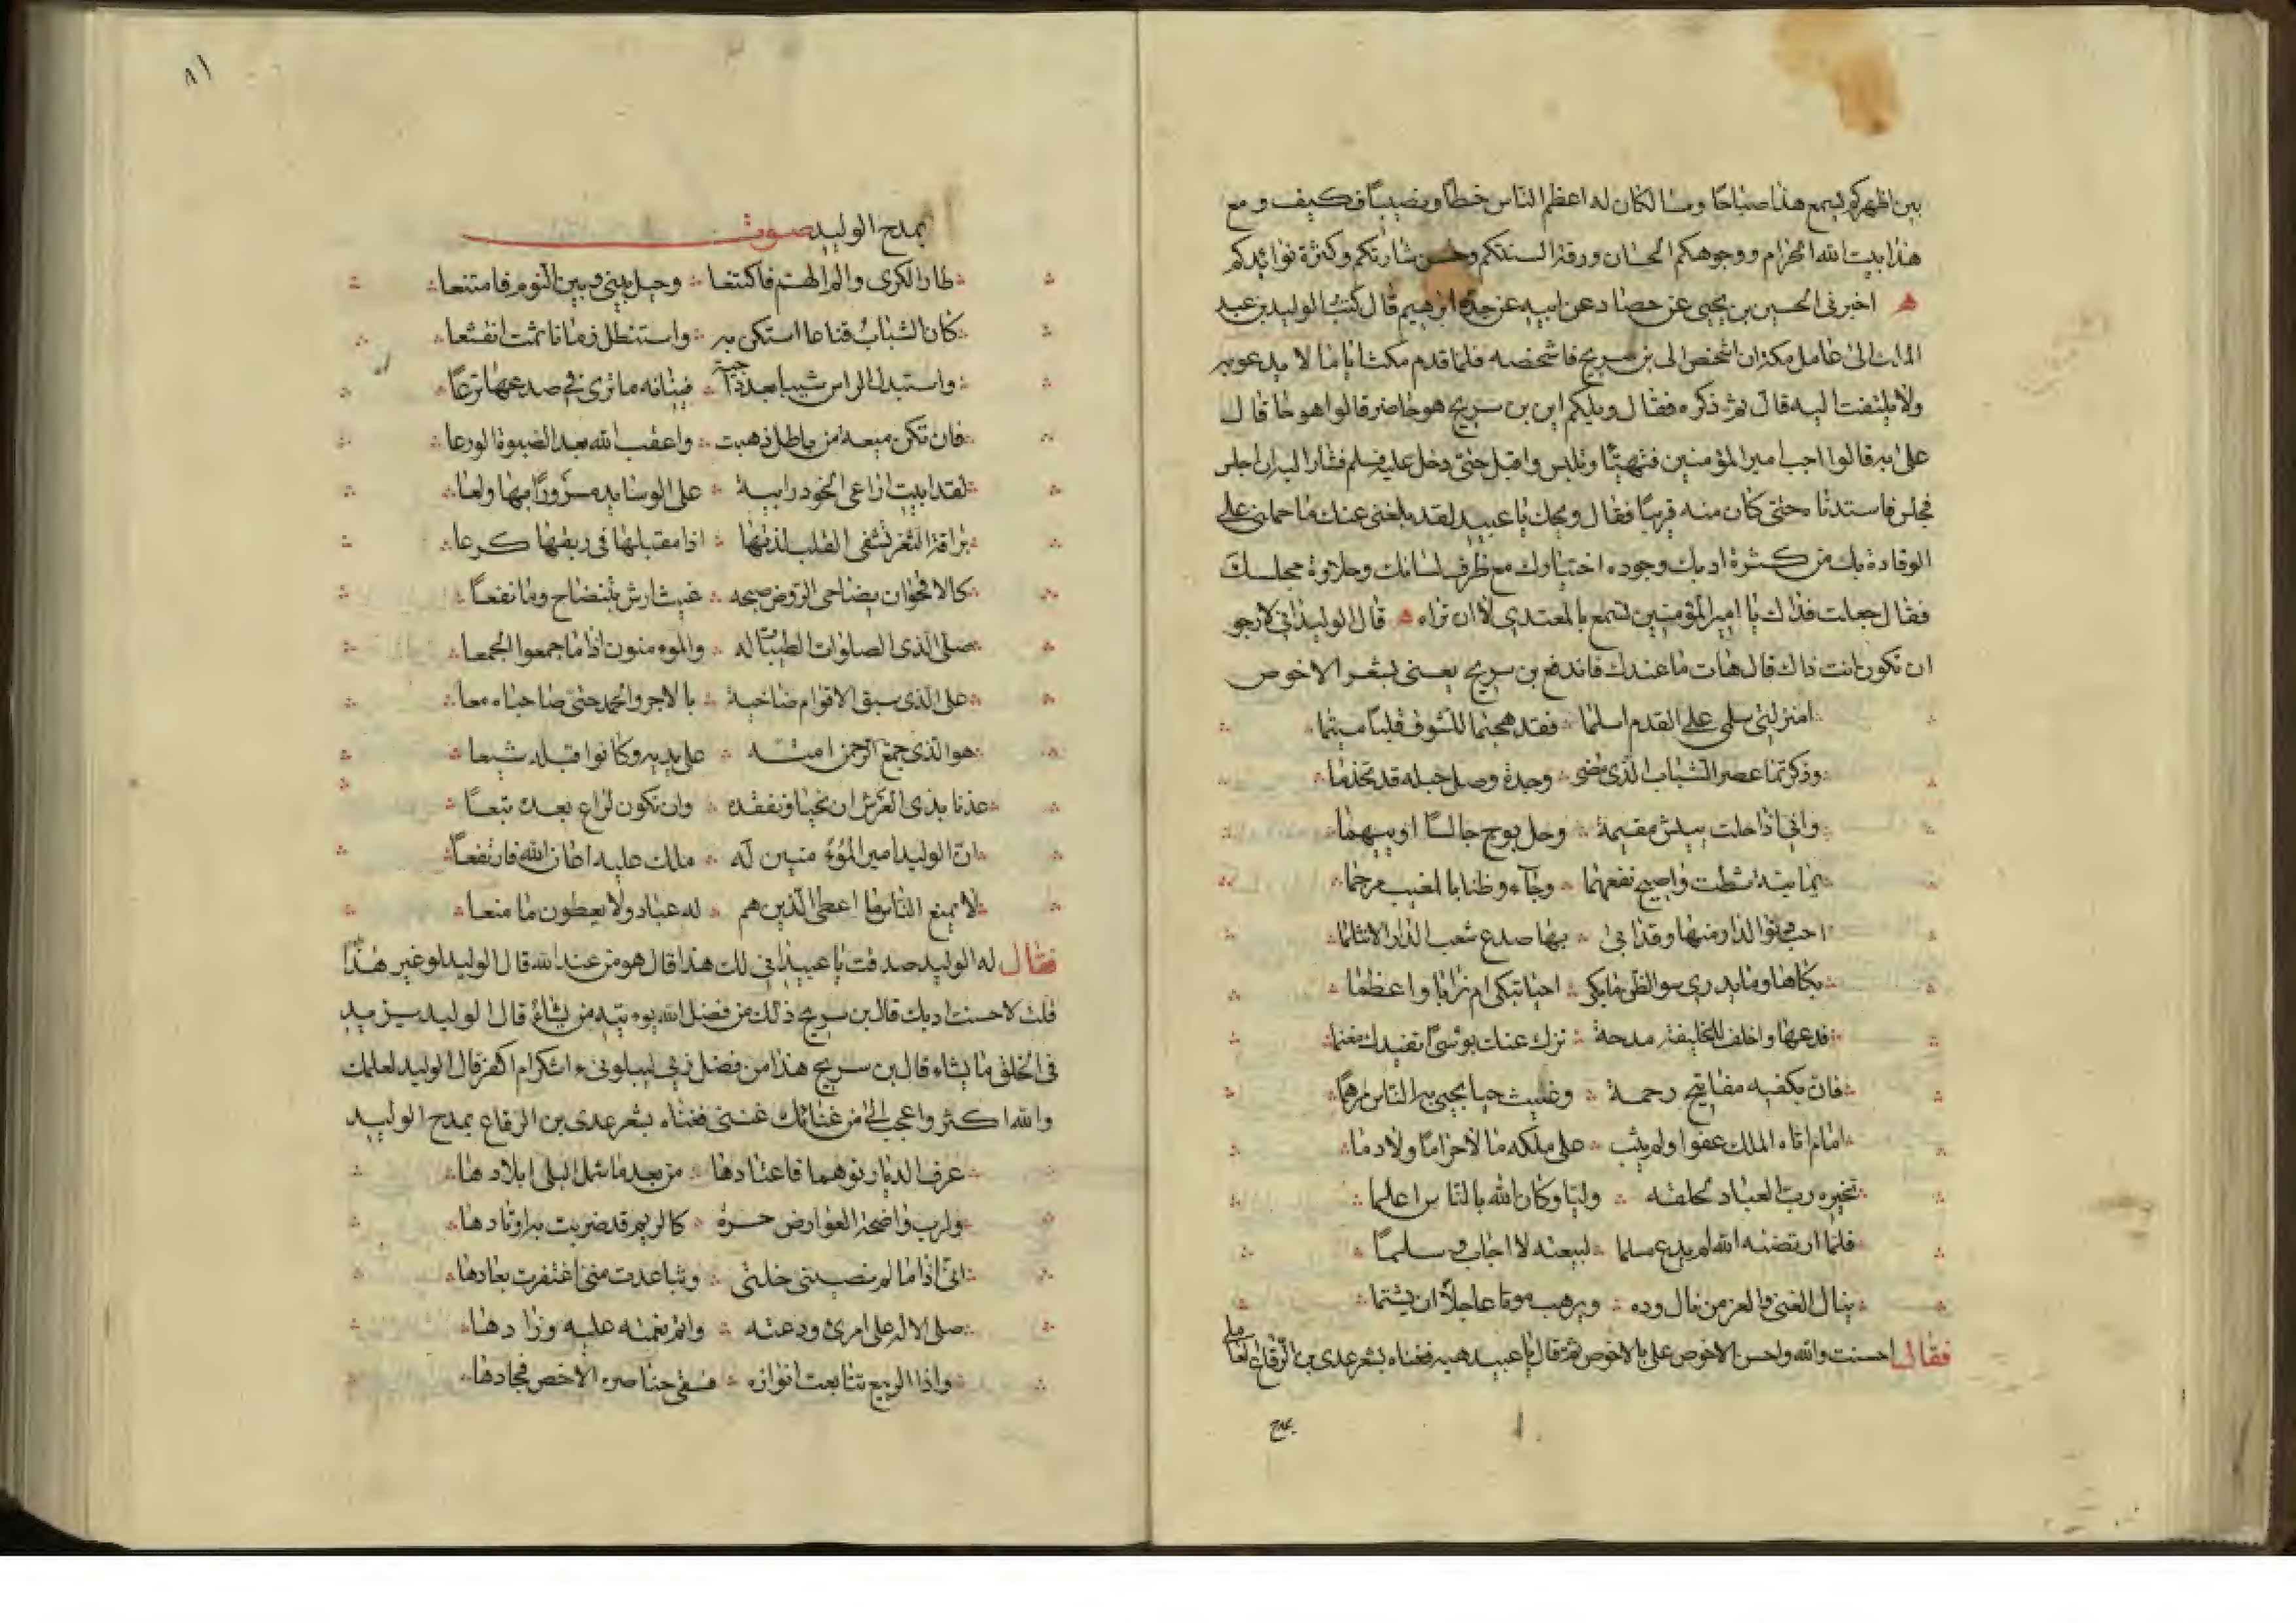 بين اظهركم يسمع هذا صباحا ومسا لكان له اعظم الناس خطا ونصيبا فكيف ومع
هذا بيت الله الحرام ووجوهكم الحسان ورقة السنتكم وحسن شارتكم وكثرة فوائدكم
اخبرني الحسين بن يحيى عن حماد عن ابيه عن جده ابرهيم قال كتب الوليد بن عبد
الملك الى عامل مكة ان اشخص الى بن سريج فاشخصه فلما قدم مكث اياما لا يدعو به
ولا يلتفت اليه قال ثم ذكره فقال ويلكم اين بن سريج هو حاضر قالوا هو حا قال
علي به قالوا اجب امير المؤمنين فتهيئا وتلبس واقبل حتى دخل عليه فسلم فشار اليه ان اجلس
فجلس فاستدنا حتى كان منه قريبا فقال ويحك يا عبيد لقد بلغنى عنك ما حملنى على
الوفادة بك من كثرة ادبك وجوده اختيارك مع ظرف لسانك وحلاوة مجلسك
فقال جعلت فداك يا امير المؤمنين تسمع بالمعتدي لا ان تراه قال الوليد اني لارجو
ان تكون انت ذاك قال هات ما عندك فاندفع بن سريج يعنى بشعر الاخوص
امنزلتى سلمى على القدم اسلما فقد هجتما للشوق قلبا متيما
وذكرتما عصر الشباب الذى مضى وجدة وصل حبله قد تجذما
وانى اذا حلت ببيش مقيمة وحل بوج جالسا او يتهما
يمانية شطت واصبح نفعها وجاء وظنا بالمغيب مرجما
احب دنوا الدار منها وقد ابى بها صدع شعب الدار الا تثلما
بكاها وما يدري سوا الظن ما بكى احيا تبكى ام ترابا واعظما
فدعها واخلف للخليفة مدحة تزل عنك بوسى او تفيدك مغنما
فان بكفيه مفاتيح رحمة وغيث حيا يحيى به الناس مرهما
امام اتاه الملك عفوا ولم يثب على ملكه مالا حراما ولا دما
تخيره رب العباد لخلقه وليا وكان الله بالناس اعلما
فلما ارتضته الله لم يدع مسلما لبيعته لا اجاب وسلما
ينال الغنى والعز من نال وده ويرهب موتا عاجلا ان يشتما
فقال احسنت والله واحسن الاخوص علي بالاخوص ثم قال يا عبيد هيه فغناه بشعر عدى بن الرقاع العاملى
يمدح
٨١
يمدح الوليد صوت
طار الكرى والم الهم فاكتنعا وحيل بينى وبين النوم فامتنعا
كان الشباب قناعا استكن به واستظل زمانا ثمت انقشعا
واستبدل الراس شيبا بعد داجية فينانه ما ترى في صدعها نزعا
فان تكن ميعة من باطل ذهبت واعقب الله بعد الصبوة الورعا
لقد ابيت اراعى الخود رابية على الوسايد مسرورا بها ولعا
براقة الثغر تشفى القلب لذتها اذا مقبلها في ريقها كرعا
كالاقحوان بضاحى الروض صبحه غيث ارش بتنضاح وما نقعا
صلى الذى الصلوات الطيبات له والموء منون اذا ما جمعوا الجمعا
على الذى سبق الاقوام ضاخية بالاجر والحمد حتى صاحباه معا
هو الذى جمع الرحمن امته على يديه وكانوا قبله شيعا
عذنا بذى العرش ان نحيا ونفقده وان نكون لراع بعده تبعا
ان الوليد امير الموء منين له ملك عليه اعان الله فارتفعا
لا يمنع الناس ما اعطى الذين هم له عباد ولا يعطون ما منعا
فقال له الوليد صدقت يا عبيد اني لك هذا قال هو من عند الله قال الوليد لو غير هذا
قلت لاحسنت ادبك قال بن سريج ذلك من فضل الله يوء تيه من يشاء قال الوليد يزيد
في الخلق ما يشاء قال بن سريج هذا من فضل ربي ليبلونى ء اشكر ام اكفر قال الوليد لعلمك
والله اكثر واعجب الي من غنائك غننى فغناه بشعر عدى بن الرقاع يمدح الوليد
عرف الديار توهما فاعتادها من بعد ما شمل البلى ابلادها
ولرب واضحة العوارض حرة كالريم قد ضربت به اوتادها
انى اذا ما لم تصبنى خلتى وتباعدت منى اغتفرت بعادها
صلى الاله على امرئ ودعته واتم نعمته عليه وزادها
واذا الربيع تتابعت انواره فسقى خناصره الاخص فجادها